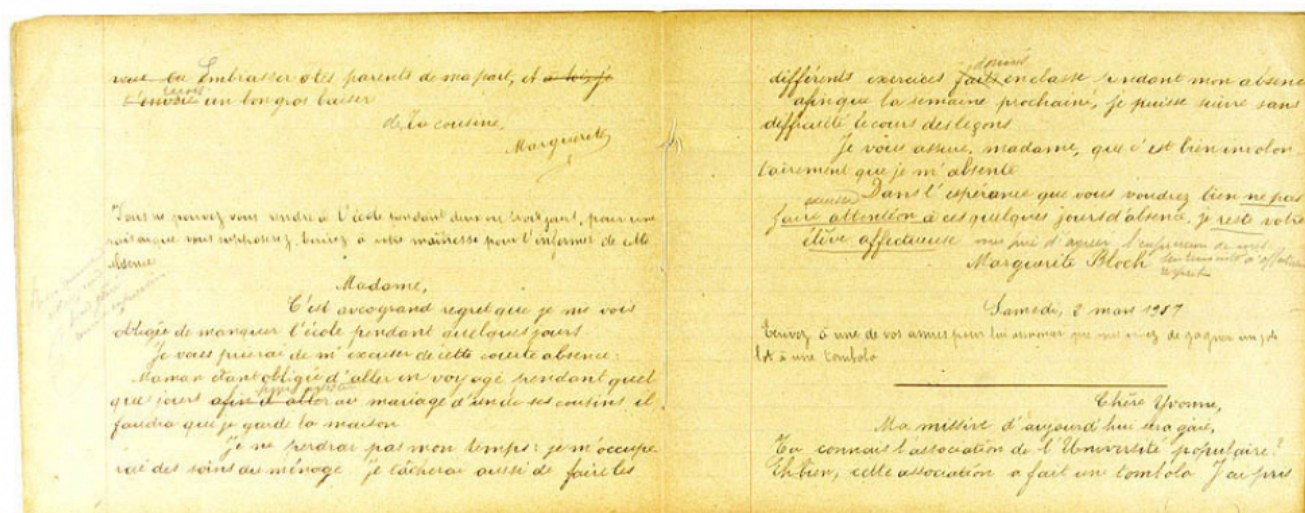 veux tu Embrasser tes parents de ma part, et à toi, je
t'envoie un bon gros baiser
de Ta cousine,
Marguerite
Vous ne pouvez vous rendre à l'école pendant deux ou trois jours, pour une
raison que vous supposerez. Écrivez à votre maîtresse pour l'informer de cette
absence
Madame,
C'est avec grand regret que je me vois
obligée de manquer l'école pendant quelques jours
Je vous prierai de m'excuser de cette courte absence:
Maman étant obligée d'aller en voyage pendant quel
ques jours afin d'aller au mariage d'un de ses cousins il
faudra que je garde la maison
Je ne perdrai pas mon temps: je m'occupe
rai des soins du ménage je tâcherai aussi de faire les
donnés
différents exercices faits en classe pendant mon absence
afin que la semaine prochaine, je puisse suivre sans
difficulté le cours des leçons
Je vous assure, madame, que c'est bien involon
tairement que je m'absente
Dans l'espérance que vous voudrez bien ne pas
excuser
faire attention à ces quelques jours d'absence, je reste votre
élève affectueuse vous prie d'agréer l'expression de mes
sentiments d'affectueux
respect
Marguerite Bloch
Samedi, 2 mars 1907
Écrivez à une de vos amies pour lui annoncer que vous venez de gagner un joli
lot à une tombola
Chère Yvonne,
Ma missive d'aujourd'hui sera gaie,
Tu connais l'association de l'Université populaire?
Eh bien, cette association a fait une tombola J'ai pris